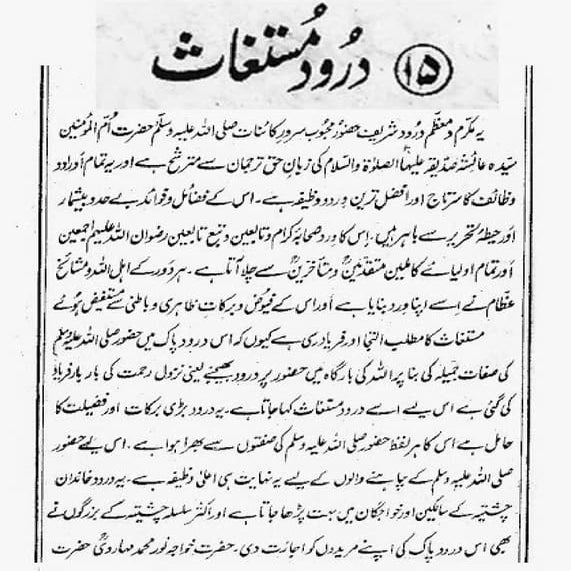 ۱۵ درود مستغاث
یہ مکرّم و معظّم درود شریف حضور محبوب سرورِ کائنات صلی اللہ علیہ وسلم حضرت اُمّ المومنین
سیّدہ عائشہ صدیقہ علیہا الصلوٰۃ والسلام کی زبانِ حق ترجمان سے مترشح ہے اور یہ تمام اوراد و
وظائف کا سرتاج اور افضل ترین وِرد و وظیفہ ہے۔ اس کے فضائل و فوائد بے حد و بیشمار
اور حیطۂ تحریر سے باہر ہیں۔ اس کا وِرد صحابۂ کرام و تابعین و تبع تابعین رضوان اللہ علیہم اجمعین
اور تمام اولیائے کاملین متقدّمینؒ و متأخرینؒ سے چلا آتا ہے۔ ہر دَور کے اہل اللہ و مشائخ
عظّام نے اِسے اپنا وِرد بنایا ہے اور اس کے فیوض و برکات ظاہری و باطنی سے مستفیض ہوئے
مستغاث کا مطلب التجا اور فریاد رسی ہے کیوں کہ اس درود پاک میں حضور صلی اللہ علیہ وسلم
کی صفات جمیلہ کی بنا پر اللہ کی بارگاہ میں حضور پر درود بھیجنے یعنی نزول رحمت کی بار بار فریاد
کی گئی ہے اس لیے اسے درود مستغاث کہا جاتا ہے۔ یہ درود بڑی برکات اور فضیلت کا
حامل ہے اس کا ہر لفظ حضور صلی اللہ علیہ وسلم کی صفتوں سے بھرا ہوا ہے۔ اس لیے حضور
صلی اللہ علیہ وسلم کے چاہنے والوں کے لیے یہ نہایت ہی اعلیٰ وظیفہ ہے۔ یہ درود خاندان
چشتیہ کے سالکین اور خواجگان میں بہت پڑھا جاتا ہے اور اکثر سلسلہ چشتیہ کے بزرگوں نے
بھی اس درود پاک کی اپنے مریدوں کو اجازت دی۔ حضرت خواجہ نور محمد مہارویؒ حضرت